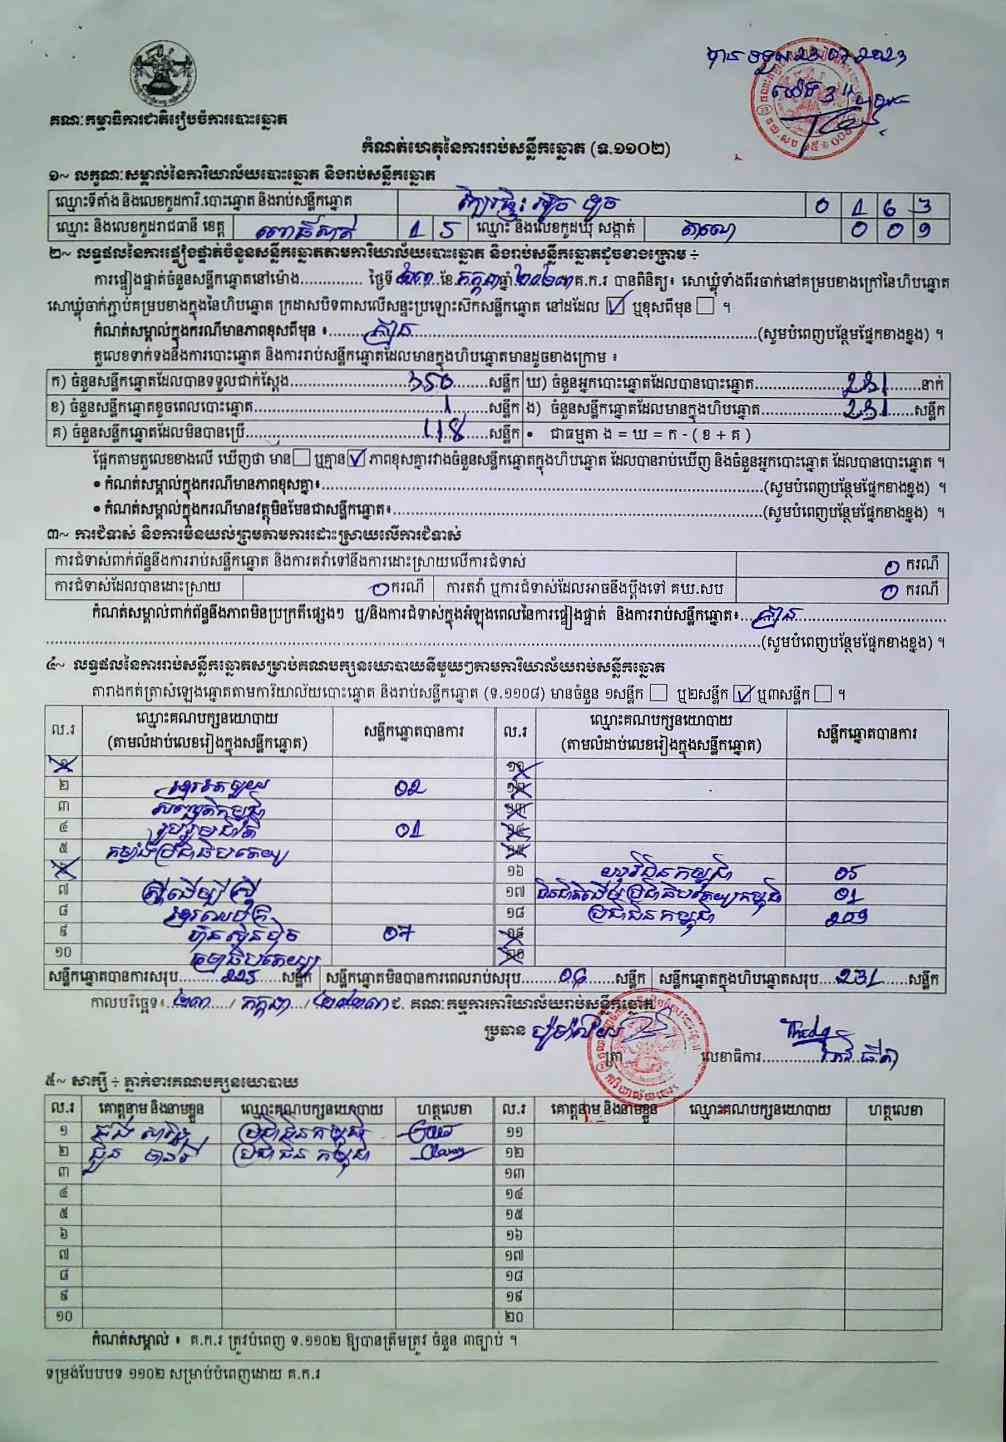 គណៈកម្មាធិការជាតិរៀបចំការបោះឆ្នោត
កំណត់ហេតុនៃការរាប់សន្លឹកឆ្នោត (ទ.១១០២)
១~ លក្ខណៈសម្គាល់នៃការិយាល័យបោះឆ្នោត និងរាប់សន្លឹកឆ្នោត
ឈ្មោះទីតាំង និងលេខកូដការិ.បោះឆ្នោត និងរាប់សន្លឹកឆ្នោត 0 1 6 3
ឈ្មោះ និងលេខកូដរាជធានី ខេត្ត ពោធិ៍សាត់ 1 5 ឈ្មោះ និងលេខកូដឃុំ សង្កាត់
២~ លទ្ធផលនៃការផ្ទៀងផ្ទាត់ចំនួនសន្លឹកឆ្នោតតាមការិយាល័យបោះឆ្នោត និងរាប់សន្លឹកឆ្នោតដូចខាងក្រោម ÷
ការផ្ទៀងផ្ទាត់ចំនួនសន្លឹកឆ្នោតនៅម៉ោង.............. ថ្ងៃទី ២៣ ខែ កក្កដា ឆ្នាំ ២០២៣ គ.ក.រ បានពិនិត្យ៖ សោឃ្លុំទាំងពីរចាក់នៅគម្របខាងក្រៅនៃហិបឆ្នោត
សោឃ្លុំចាក់ភ្ជាប់គម្របខាងក្នុងនៃហិបឆ្នោត ក្រដាសបិទពាសលើសន្ទះប្រឡោះស៊កសន្លឹកឆ្នោត នៅដដែល ☑ ឬខុសពីមុន ☐ ។
កំណត់សម្គាល់ក្នុងករណីមានភាពខុសពីមុន ៖ គ្មាន (សូមបំពេញបន្ថែមផ្នែកខាងខ្នង) ។
តួលេខទាក់ទងនឹងការបោះឆ្នោត និងការរាប់សន្លឹកឆ្នោតដែលមានក្នុងហិបឆ្នោតមានដូចខាងក្រោម ៖
ក) ចំនួនសន្លឹកឆ្នោតដែលបានទទួលជាក់ស្តែង 350 សន្លឹក ឃ) ចំនួនអ្នកបោះឆ្នោតដែលបានបោះឆ្នោត 231 នាក់
ខ) ចំនួនសន្លឹកឆ្នោតខូចពេលបោះឆ្នោត 1 សន្លឹក ង) ចំនួនសន្លឹកឆ្នោតដែលមានក្នុងហិបឆ្នោត 231 សន្លឹក
គ) ចំនួនសន្លឹកឆ្នោតដែលមិនបានប្រើ 118 សន្លឹក • ជាធម្មតា ង = ឃ = ក - ( ខ + គ )
ផ្អែកតាមតួលេខខាងលើ ឃើញថា មាន ☐ ឬគ្មាន ☑ ភាពខុសគ្នារវាងចំនួនសន្លឹកឆ្នោតក្នុងហិបឆ្នោត ដែលបានរាប់ឃើញ និងចំនួនអ្នកបោះឆ្នោត ដែលបានបោះឆ្នោត ។
• កំណត់សម្គាល់ក្នុងករណីមានភាពខុសគ្នា៖ (សូមបំពេញបន្ថែមផ្នែកខាងខ្នង) ។
• កំណត់សម្គាល់ក្នុងករណីមានវត្ថុមិនមែនជាសន្លឹកឆ្នោត៖ (សូមបំពេញបន្ថែមផ្នែកខាងខ្នង) ។
៣~ ការជំទាស់ និងការមិនយល់ព្រមតាមការដោះស្រាយលើការជំទាស់
ការជំទាស់ពាក់ព័ន្ធនឹងការរាប់សន្លឹកឆ្នោត និងការតវ៉ាទៅនឹងការដោះស្រាយលើការជំទាស់ 0 ករណី
ការជំទាស់ដែលបានដោះស្រាយ 0 ករណី ការតវ៉ា ឬការជំទាស់ដែលអាចនឹងប្តឹងទៅ គឃ.សប 0 ករណី
កំណត់សម្គាល់ពាក់ព័ន្ធនឹងភាពមិនប្រក្រតីផ្សេងៗ ឬ/និងការជំទាស់ក្នុងអំឡុងពេលនៃការផ្ទៀងផ្ទាត់ និងការរាប់សន្លឹកឆ្នោត៖ គ្មាន
(សូមបំពេញបន្ថែមផ្នែកខាងខ្នង) ។
៤~ លទ្ធផលនៃការរាប់សន្លឹកឆ្នោតសម្រាប់គណបក្សនយោបាយនីមួយៗតាមការិយាល័យរាប់សន្លឹកឆ្នោត
តារាងកត់ត្រាសំឡេងឆ្នោតតាមការិយាល័យបោះឆ្នោត និងរាប់សន្លឹកឆ្នោត (ទ.១១០៨) មានចំនួន ១សន្លឹក ☐ ឬ២សន្លឹក ☑ ឬ៣សន្លឹក ☐ ។
ល.រ ឈ្មោះគណបក្សនយោបាយ សន្លឹកឆ្នោតបានការ ល.រ ឈ្មោះគណបក្សនយោបាយ សន្លឹកឆ្នោតបានការ
(តាមលំដាប់លេខរៀងក្នុងសន្លឹកឆ្នោត) (តាមលំដាប់លេខរៀងក្នុងសន្លឹកឆ្នោត)
២ 02
៣
៤ 01
៥ កម្លាំងប្រជាធិបតេយ្យ
១៦ 05
៧ ស្ត្រីដើម្បីស្ត្រី ១៧ 01
៨ ១៨ ប្រជាជនកម្ពុជា 209
៩ ហ៊្វុនស៊ិនប៉ិច 07
១០
សន្លឹកឆ្នោតបានការសរុប 225 សន្លឹក សន្លឹកឆ្នោតមិនបានការពេលរាប់សរុប 06 សន្លឹក សន្លឹកឆ្នោតក្នុងហិបឆ្នោតសរុប 231 សន្លឹក
កាលបរិច្ឆេទ៖ ២៣ / កក្កដា / ២០២៣ ជ. គណៈកម្មការការិយាល័យរាប់សន្លឹកឆ្នោត
ប្រធាន
ត្រា លេខាធិការ
៥~ សាក្សី ÷ ភ្នាក់ងារគណបក្សនយោបាយ
ល.រ គោត្តនាម និងនាមខ្លួន ឈ្មោះគណបក្សនយោបាយ ហត្ថលេខា ល.រ គោត្តនាម និងនាមខ្លួន ឈ្មោះគណបក្សនយោបាយ ហត្ថលេខា
១ ប្រជាជនកម្ពុជា ១១
២ ប្រជាជនកម្ពុជា ១២
៣ ១៣
៤ ១៤
៥ ១៥
៦ ១៦
៧ ១៧
៨ ១៨
៩ ១៩
១០ ២០
កំណត់សម្គាល់ ៖ គ.ក.រ ត្រូវបំពេញ ទ.១១០២ ឱ្យបានត្រឹមត្រូវ ចំនួន ៣ច្បាប់ ។
ទម្រង់បែបបទ ១១០២ សម្រាប់បំពេញដោយ គ.ក.រ